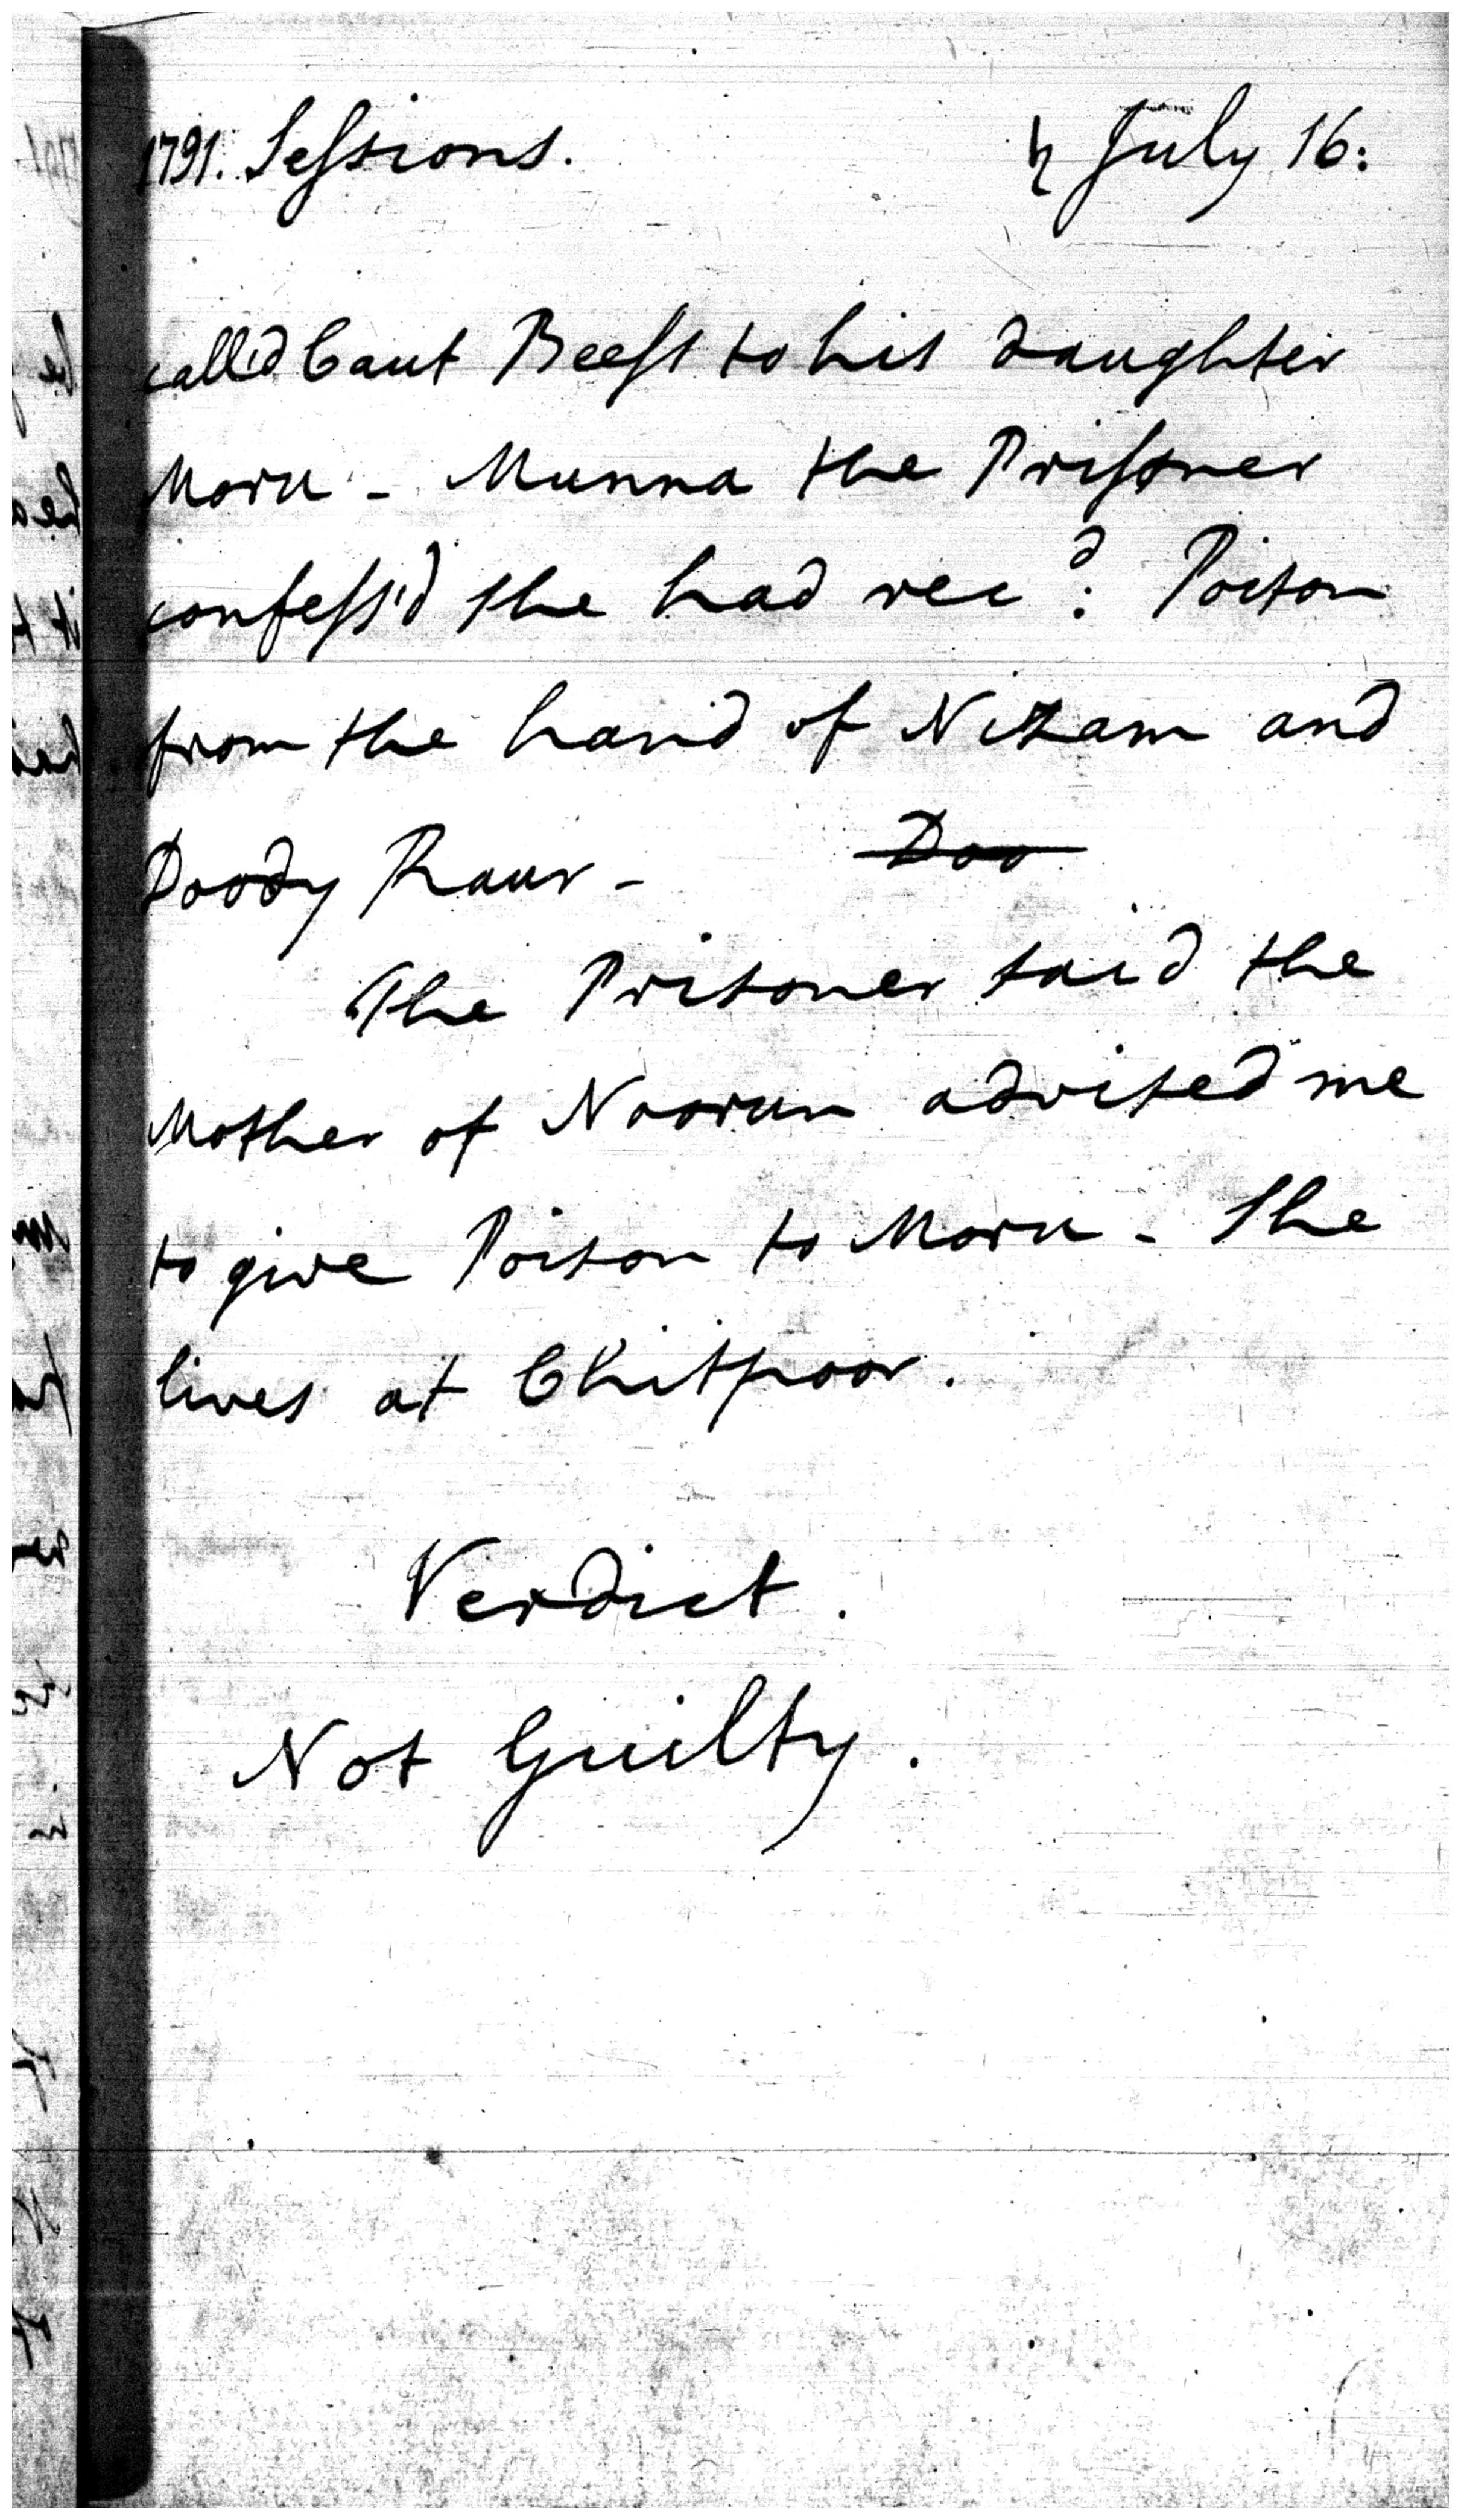 1791. Sessions. ♄ July 16:
call'd Caut Beess to his daughter
Moru - Munna the Prisoner
confess'd she had rec^d: Poison
from the hand of Nizam and
Doody Raur - Doo
The Prisoner said the
Mother of Noorun advised me
to give Poison to Moru - She
lives at Chitpoor.
Verdict.
Not Guilty.